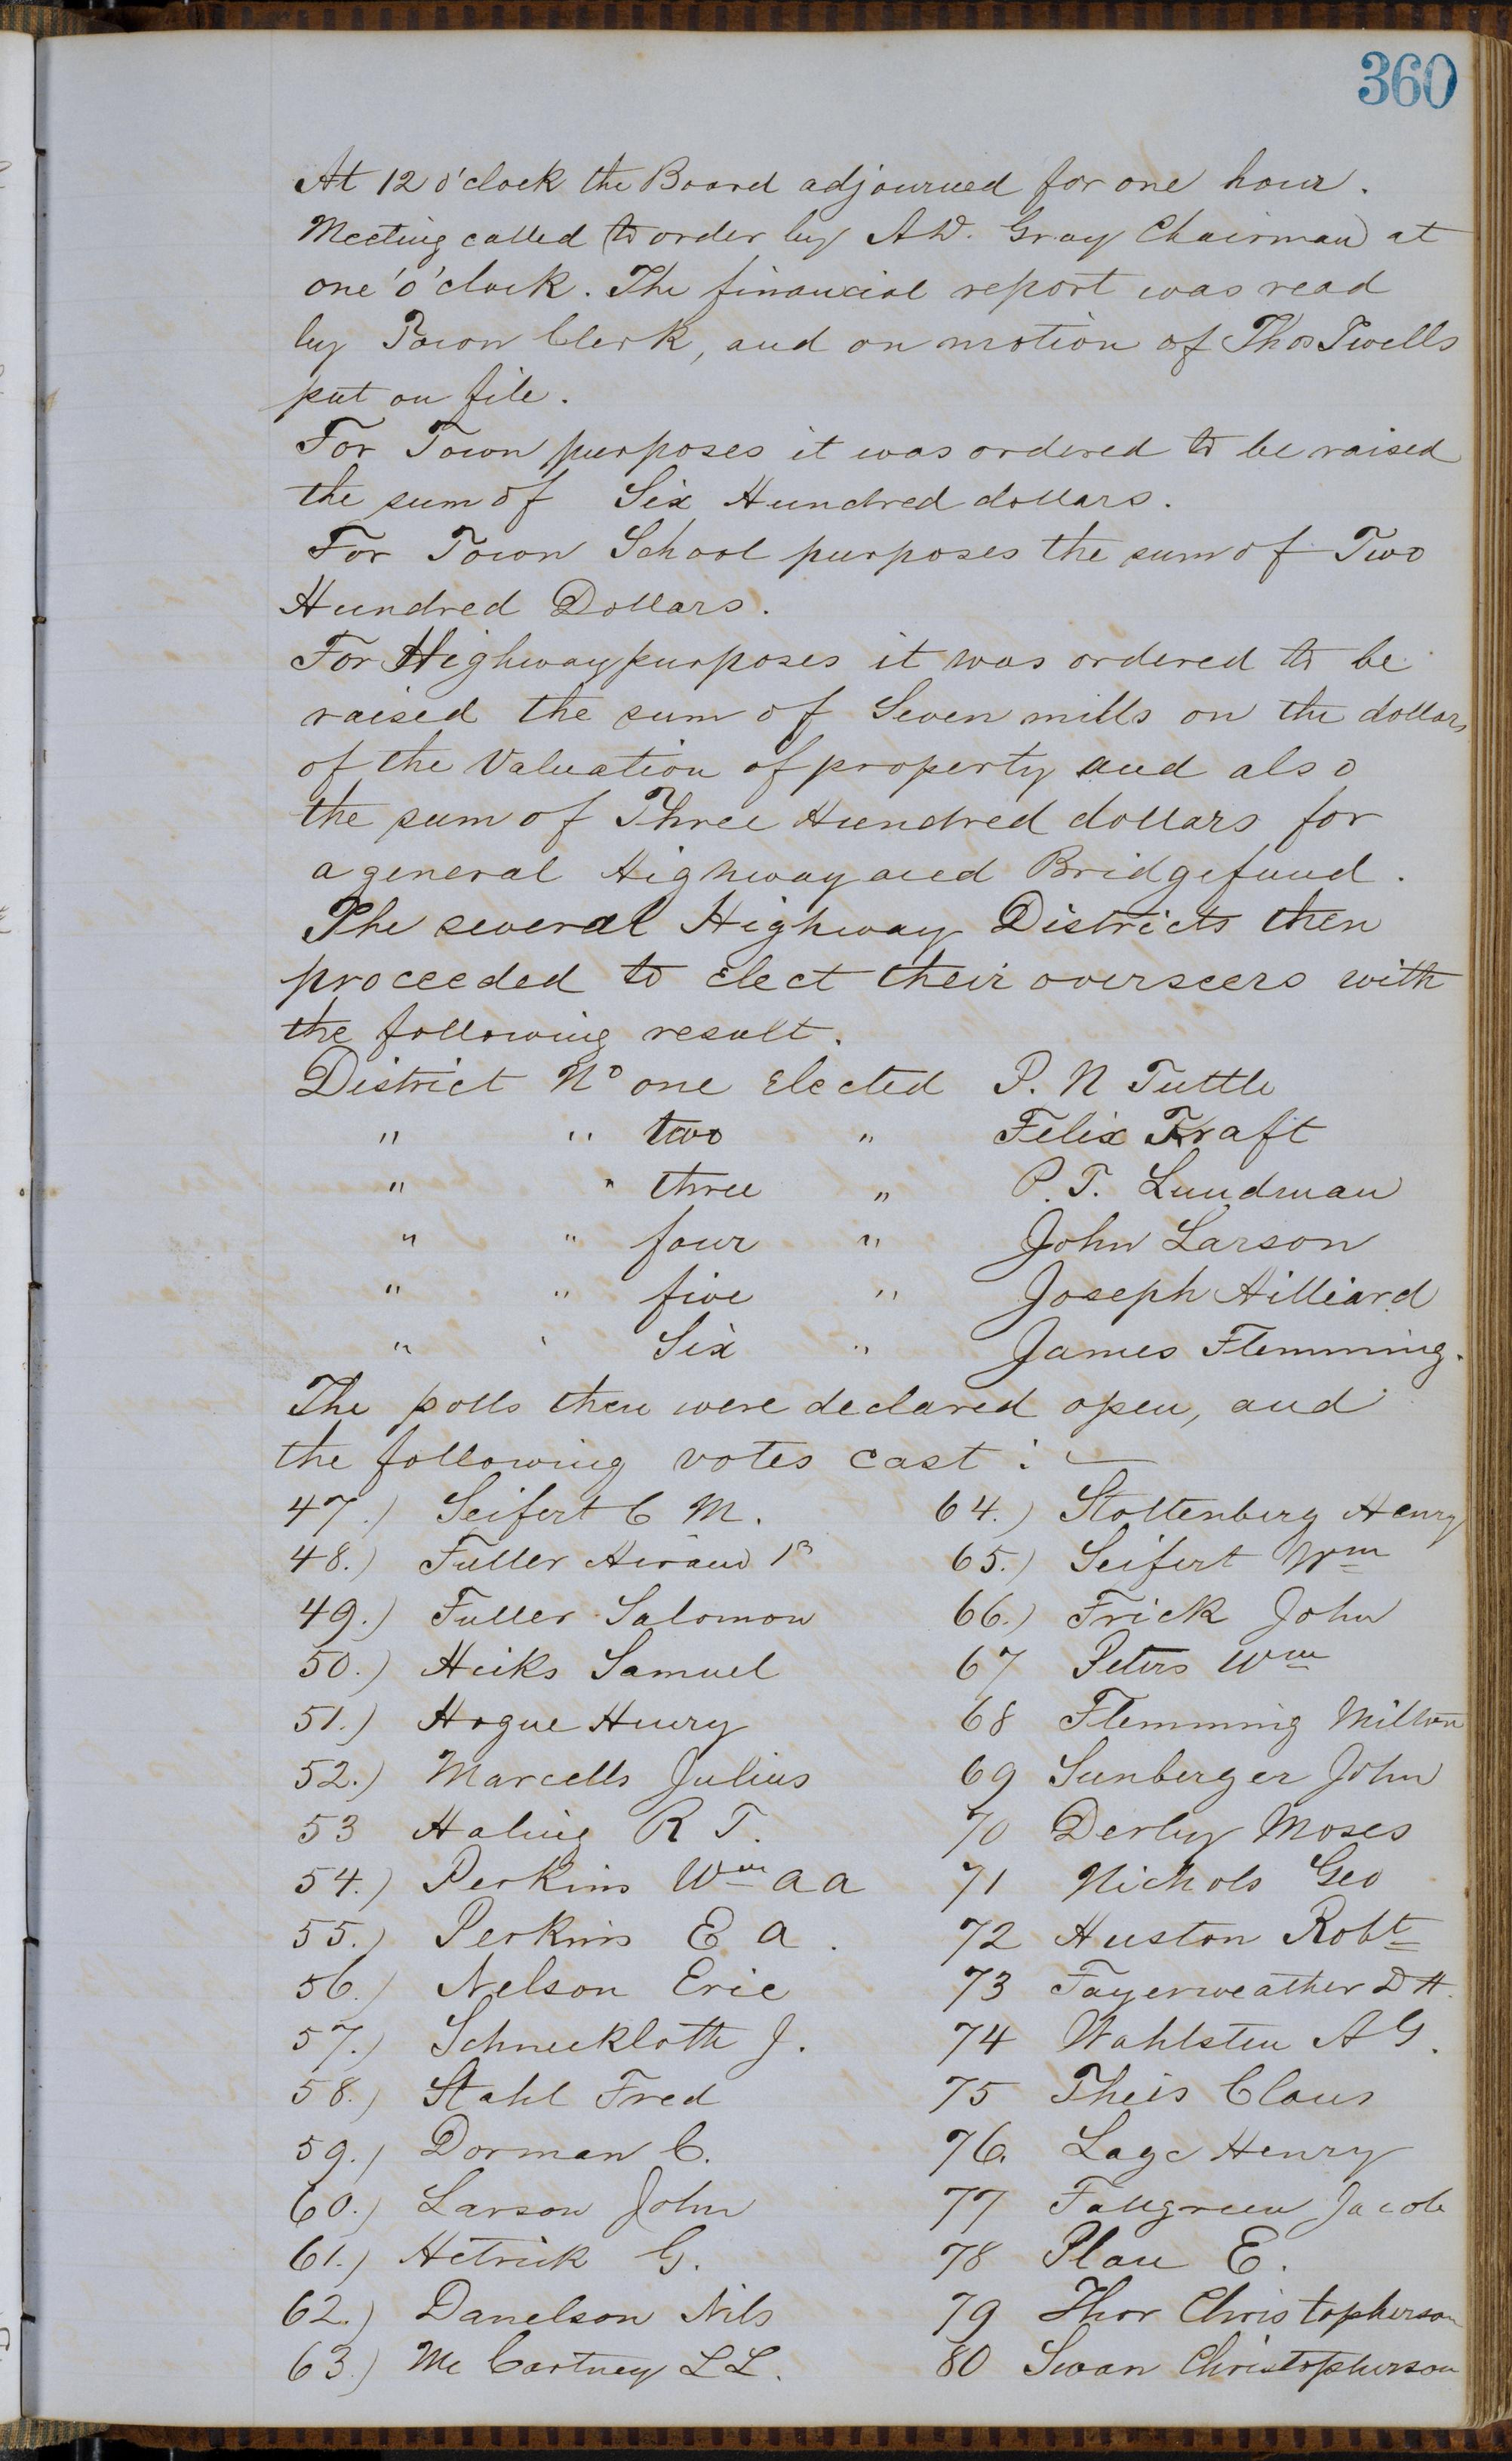 360
At 12 o'clock the Board adjourned for one hour.
Meeting called to order by A W. Gray Chairman at
one 'o'clock. The financial report was read
by Town Clerk, and on motion of Thos Twells
put on file.
For Town purposes it was ordered to be raised
the sum of Six Hundred dollars.
For Town School purposes the sum of Two
Hundred Dollars.
For Highway purposes it was ordered to be
raised the sum of Seven mills on the dollars
of the Valuation of property and also
the sum of Three Hundred dollars for
a general Highway and Bridgefund.
The several Highway Districts then
proceeded to elect their overseers with
the following result.
District No one Elected P. N Tuttle
" " two " Felix Kraft
" " three " P. T. Lundman
" " four " John Larson
" " five " Joseph Hilliard
" " Six " James Flemming.
The polls then were declared open, and
the following votes cast : —
47.) Seifert C M.
48.) Fuller Hiram
49.) Fuller Salomon
50.) Hicks Samuel
51.) Hogue Henry
52.) Marcells Julius
53 Haling R T.
54.) Perkins Wm A A
55.) Perkins E A.
56.) Nelson Eric
57.) Schneckloth J.
58.) Stahl Fred
59.) Dorman C.
60.) Larson John
61.) Hetrick G.
62.) Danelson Nils
63.) Mc Cartney L L.
64.) Stoltenberg Henry
65.) Seifert Wm
66.) Frick John
67 Peters Wm
68 Flemming Milton
69 Sunberger John
70 Derby Moses
71 Nichols Geo
72 Huston Robt
73 Fayerweather D H.
74 Wahlsten A G.
75 Theis Claus
76. Lage Henry
77 Jacob
78 Plau E.
79 Thor Christopherson
80 Swan Christopherson